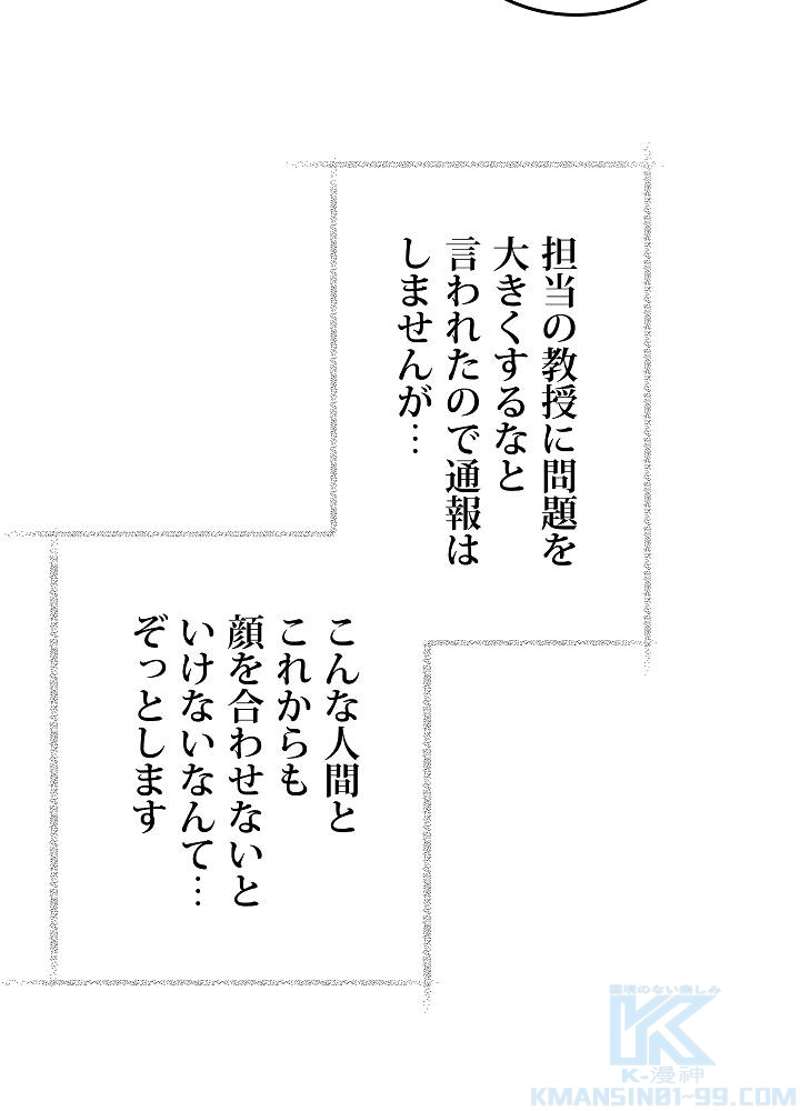 担当の教授に問題を
大きくするなと
言われたので通報は
しませんが…
こんな人間と
これからも
顔を合わせないと
いけないなんて…
ぞっとします
環境のない楽しみ
K-漫神
KMANSIN01-99.COM